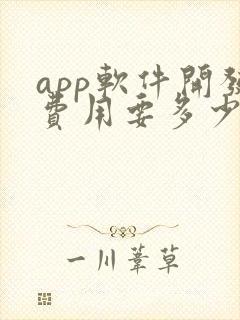 app軟件開發
費用要多少
一川葦草